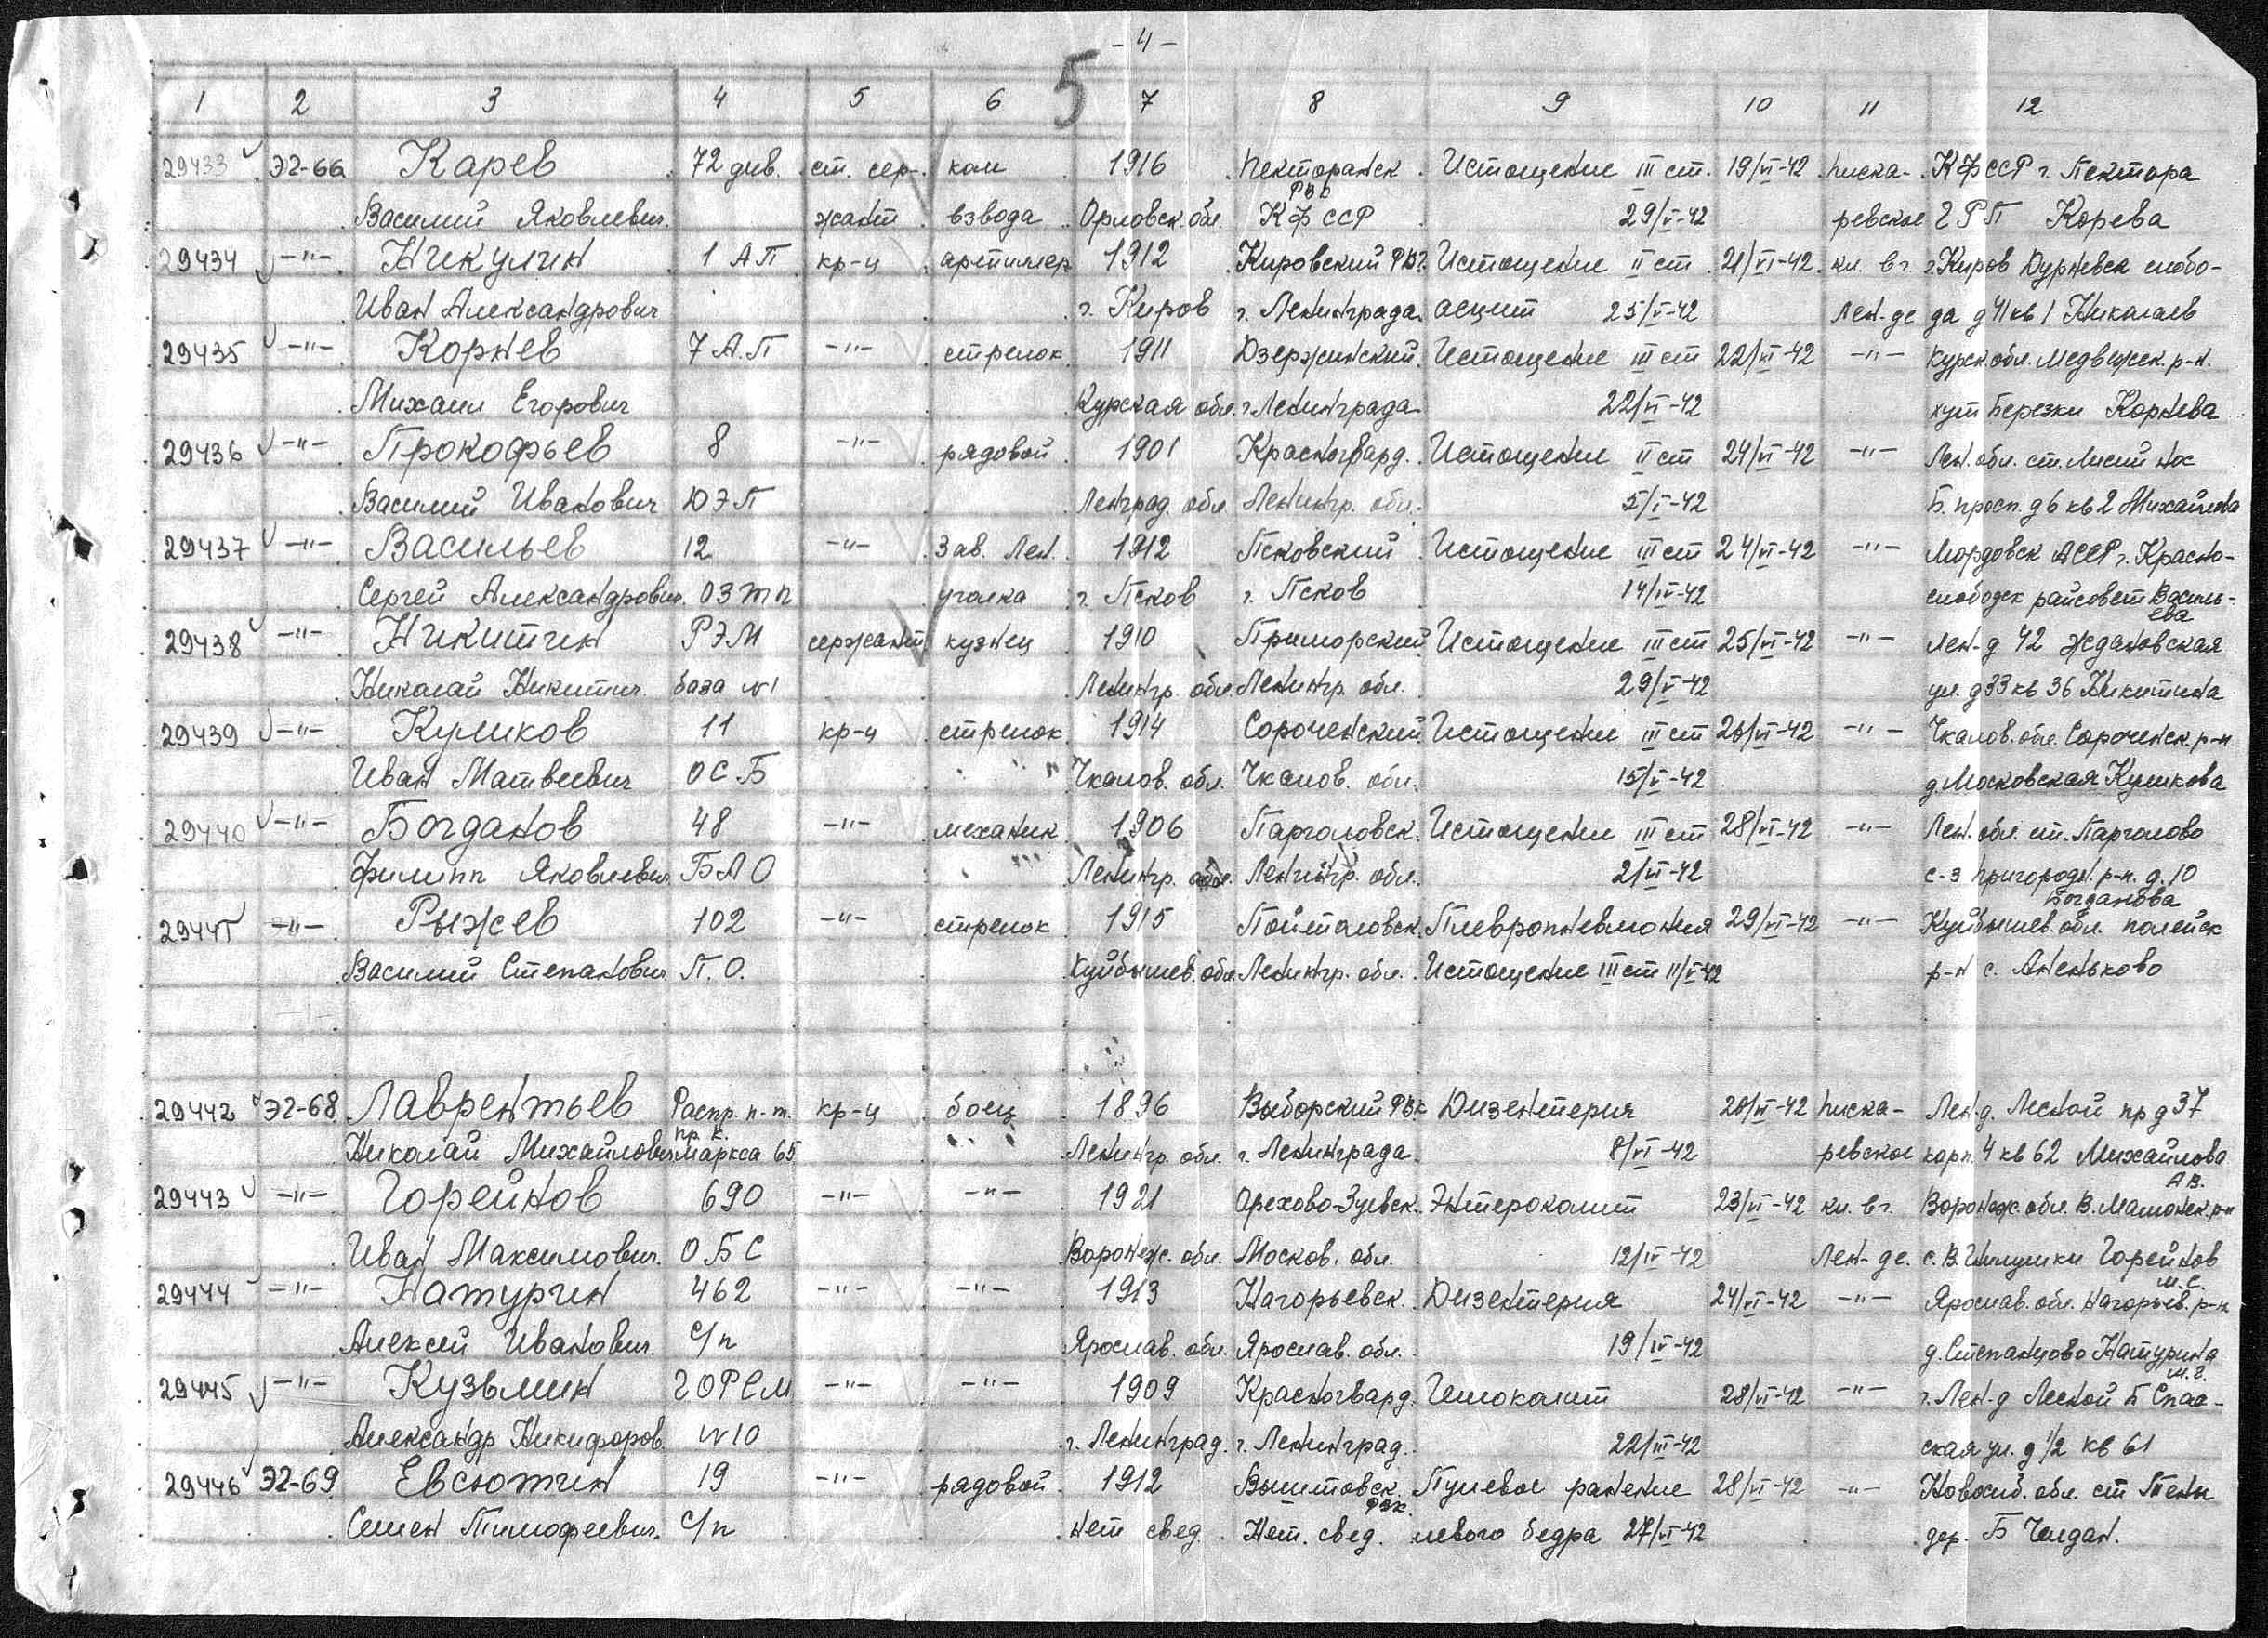 - 4 -
5
1 2 3 4 5 6 7 8 9 10 11 12
29433 Э2-66 Карев 72 див. ст. сер- ком 1916 Пекторанск Истощение III ст. 19/VI-42 Писка- КФССР г. Пектора
РВК
Василий Яковлевич жант взвода Орловск. обл. КФССР 29/V-42 ревское 2 РП Корева
29434 -"- Никулин 1 АП кр-ц артиллер 1912 Кировский РВК Истощение II ст 21/VI-42 кл. в г. г. Киров Дурневск слобо-
Иван Александрович г. Киров г. Ленинграда асцит 25/V-42 Лен-де да д 41 кв 1 Николаев
29435 -"- Корнев 7 А.П -"- стрелок 1911 Дзержинский Истощение III ст 22/VI-42 -"- Курск обл. Медвежск. р-н.
Михаил Егорович Курская обл. г. Ленинграда 22/VI-42 хут Березки Корнева
29436 -"- Прокофьев 8 -"- рядовой 1901 Красногвард. Истощение II ст 24/VI-42 -"- Лен. обл. ст. Лисий Нос
Василий Иванович ДЭП Ленград. обл Ленингр. обл. 5/I-42 Б. просп. д 6 кв 2 Михайлова
29437 -"- Васильев 12 -"- Зав. Лен. 1912 Псковский Истощение III ст 24/VI-42 -"- Мордовск АССР г. Красно-
Сергей Александрович ОЗТП уголка г. Псков г. Псков 14/IV-42 слободск райсовет Василь-
ева
29438 -"- Никитин РЭМ сержант кузнец 1910 Приморский Истощение III ст 25/VI-42 -"- Лен-д 42 Ждановская
Николай Никитич. база №1 Ленингр. обл. Ленингр. обл. 29/V-42 ул. д 33 кв 36 Никитина
29439 -"- Куликов 11 кр-ц стрелок 1914 Сороченский Истощение III ст 26/VI-42 -"- Чкалов. обл. Сороченск. р-н
Иван Матвеевич ОСБ Чкалов. обл. Чкалов. обл. 15/V-42 д. Московская Куликова
29440 -"- Богданов 48 -"- механик 1906 Парголовск. Истощение III ст 28/VI-42 -"- Лен. обл. ст. Парголово
Филипп Яковлевич БАО Ленингр. обл. Ленингр. обл. 2/VI-42 с-з пригородн. р-н. д. 10
Богданова
29441 -"- Рыжев 102 -"- стрелок 1915 Пойталовск. Плевропневмония 29/VI-42 -"- Куйбышев. обл. полейск
Василий Степанович П.О. Куйбышев. обл Ленингр. обл. Истощение III ст 11/V-42 р-н с. Аненьково
29442 Э2-68 Лаврентьев Распр. п-т. кр-ц боец 1896 Выборский РВК Дизентерия 20/VI-42 Писка- Лен-д. Лесной пр д 37
пр. к.
Николай Михайлович Маркса 65 Ленингр. обл. г. Ленинграда 8/VI-42 ревское корп. 4 кв 62 Михайлова
А В.
29443 -"- Горейнов 690 -"- -"- 1921 Орехово-Зуевск. Энтероколит 23/VI-42 кл. в г. Воронеж. обл. В. Мамонск. р-н
Иван Максимович. ОБС Воронеж. обл. Москов. обл. 12/IV-42 Лен-де. с. В. Горейнов
М. С.
29444 -"- Натургин 462 -"- -"- 1913 Нагорьевск. Дизентерия 24/VI-42 -"- Ярослав. обл. Нагорьев. р-н
Алексей Иванович. С/п Ярослав. обл. Ярослав. обл. 19/IV-42 д. Степанцово Натурина
М. Е.
29445 -"- Кузьмин 2 ОРСМ -"- -"- 1909 Красногвард. Гемоколит 28/VI-42 -"- г. Лен-д Лесной Б Спас-
Александр Никифоров. №10 г. Ленинград. г. Ленинград. 22/III-42 ская ул. д 1/2 кв 61
29446 Э2-69 Евсютин 19 -"- рядовой 1912 Пулевое ранение 28/VI-42 -"- Новосиб. обл. ст
РВК.
Семен Тимофеевич. С/п Нет свед. Нет. свед. левого бедра 27/VI-42 дер. Б Челдан.